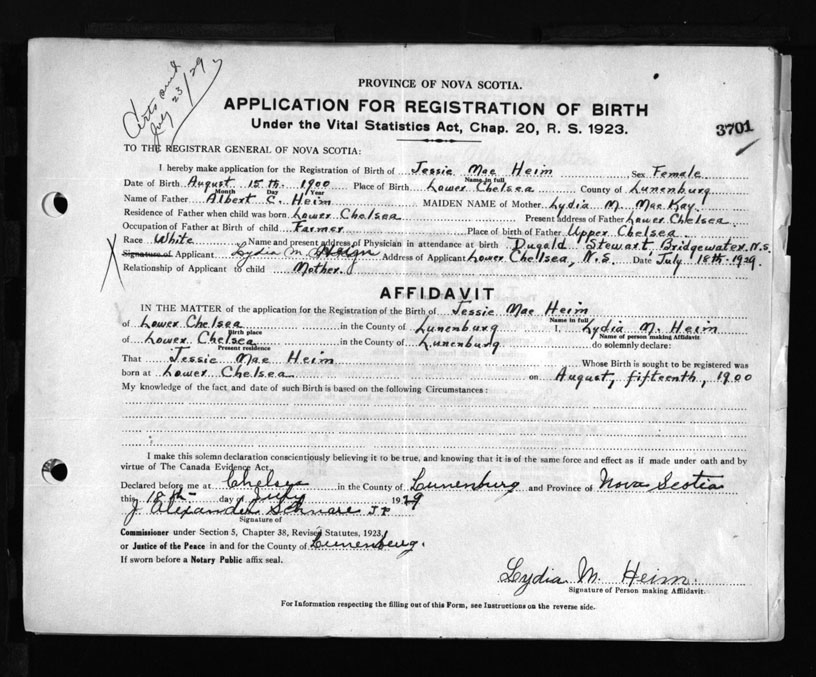 July 23/29
PROVINCE OF NOVA SCOTIA.
APPLICATION FOR REGISTRATION OF BIRTH
Under the Vital Statistics Act, Chap. 20, R. S. 1923.
3701
TO THE REGISTRAR GENERAL OF NOVA SCOTIA:
I hereby make application for the Registration of Birth of Jessie Mae Heim Sex Female
Name in full
Date of Birth August 15th. 1900 Place of Birth Lower Chelsea County of Lunenburg
Month Day Year
Name of Father Albert C. Heim MAIDEN NAME of Mother Lydia M. MacKay
Residence of Father when child was born Lower Chelsea Present address of Father Lower Chelsea
Occupation of Father at Birth of child Farmer Place of birth of Father Upper Chelsea
Race White Name and present address of Physician in attendance at birth Dugald Stewart, Bridgewater, N.S.
X Signature of Applicant Lydia M. Address of Applicant Lower Chelsea, N.S. Date July 18th 1929.
Relationship of Applicant to child Mother.
AFFIDAVIT
IN THE MATTER of the application for the Registration of the Birth of Jessie Mae Heim
Name in full
of Lower Chelsea in the County of Lunenburg I, Lydia M. Heim
Birth place Name of person making Affidavit
of Lower Chelsea in the County of Lunenburg do solemnly declare:
Present residence
That Jessie Mae Heim Whose Birth is sought to be registered was
born at Lower Chelsea on August, fifteenth, 1900
My knowledge of the fact and date of such Birth is based on the following Circumstances:
I make this solemn declaration conscientiously believing it to be true, and knowing that it is of the same force and effect as if made under oath and by
virtue of The Canada Evidence Act.
Declared before me at Chelsea in the County of Lunenburg and Province of Nova Scotia
this 18th day of July 1929
J. Alexander Schnare J.P.
Signature of
Commissioner under Section 5, Chapter 38, Revised Statutes, 1923,
or Justice of the Peace in and for the County of Lunenburg.
If sworn before a Notary Public affix seal.
Lydia M. Heim.
Signature of Person making Affidavit.
For Information respecting the filling out of this Form, see Instructions on the reverse side.